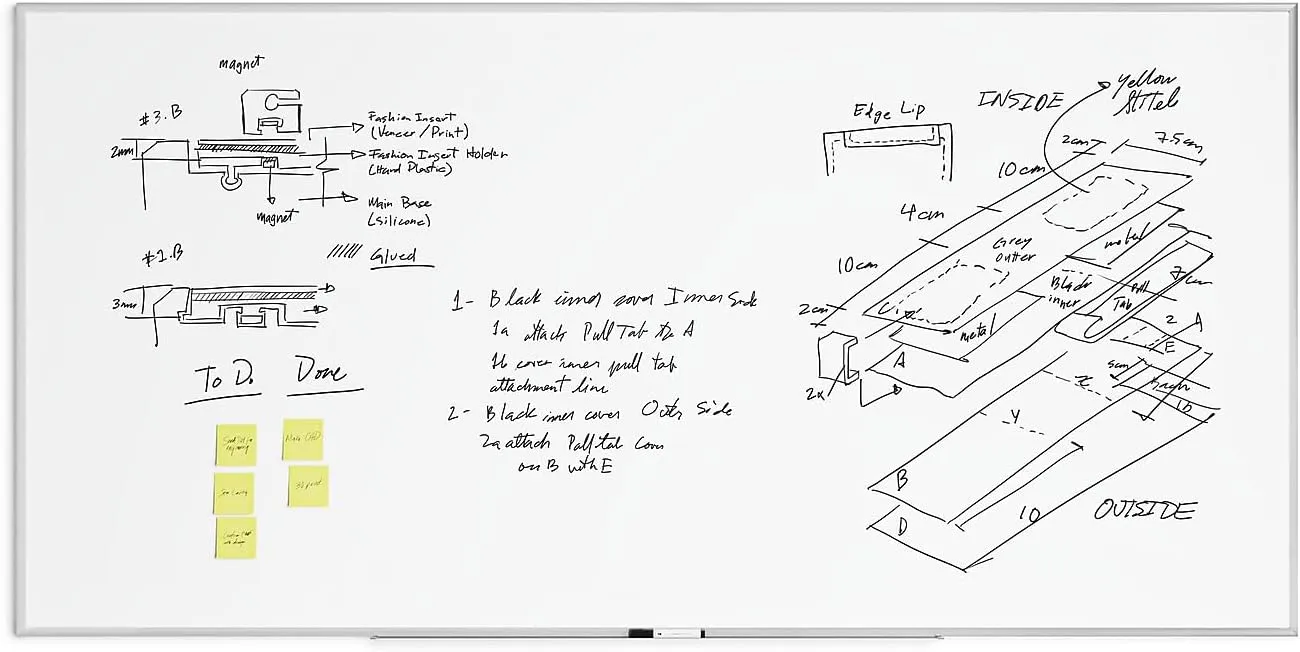 magnet
#3.B
2mm
Fashion Insert
(Veneer / Print)
Fashion Insert Holder
(Hard Plastic)
magnet
Main Base
(Silicone)
#1.B
Glued
3mm
To Do
Done
3D print
1- Black inner cover Inner Side
1a attach Pull Tab to A
1b cover inner pull tab
attachment line
2- Black inner cover Outer Side
2a attach Pull tab cover
on B with E
Edge Lip
INSIDE
Yellow
2cm
7.5cm
10cm
4cm
Grey
outter
metal
10cm
Black
inner
Pull
Tab
7cm
2cm
metal
A
2
E
A
2x
5cm
Y
B
D
10
OUTSIDE